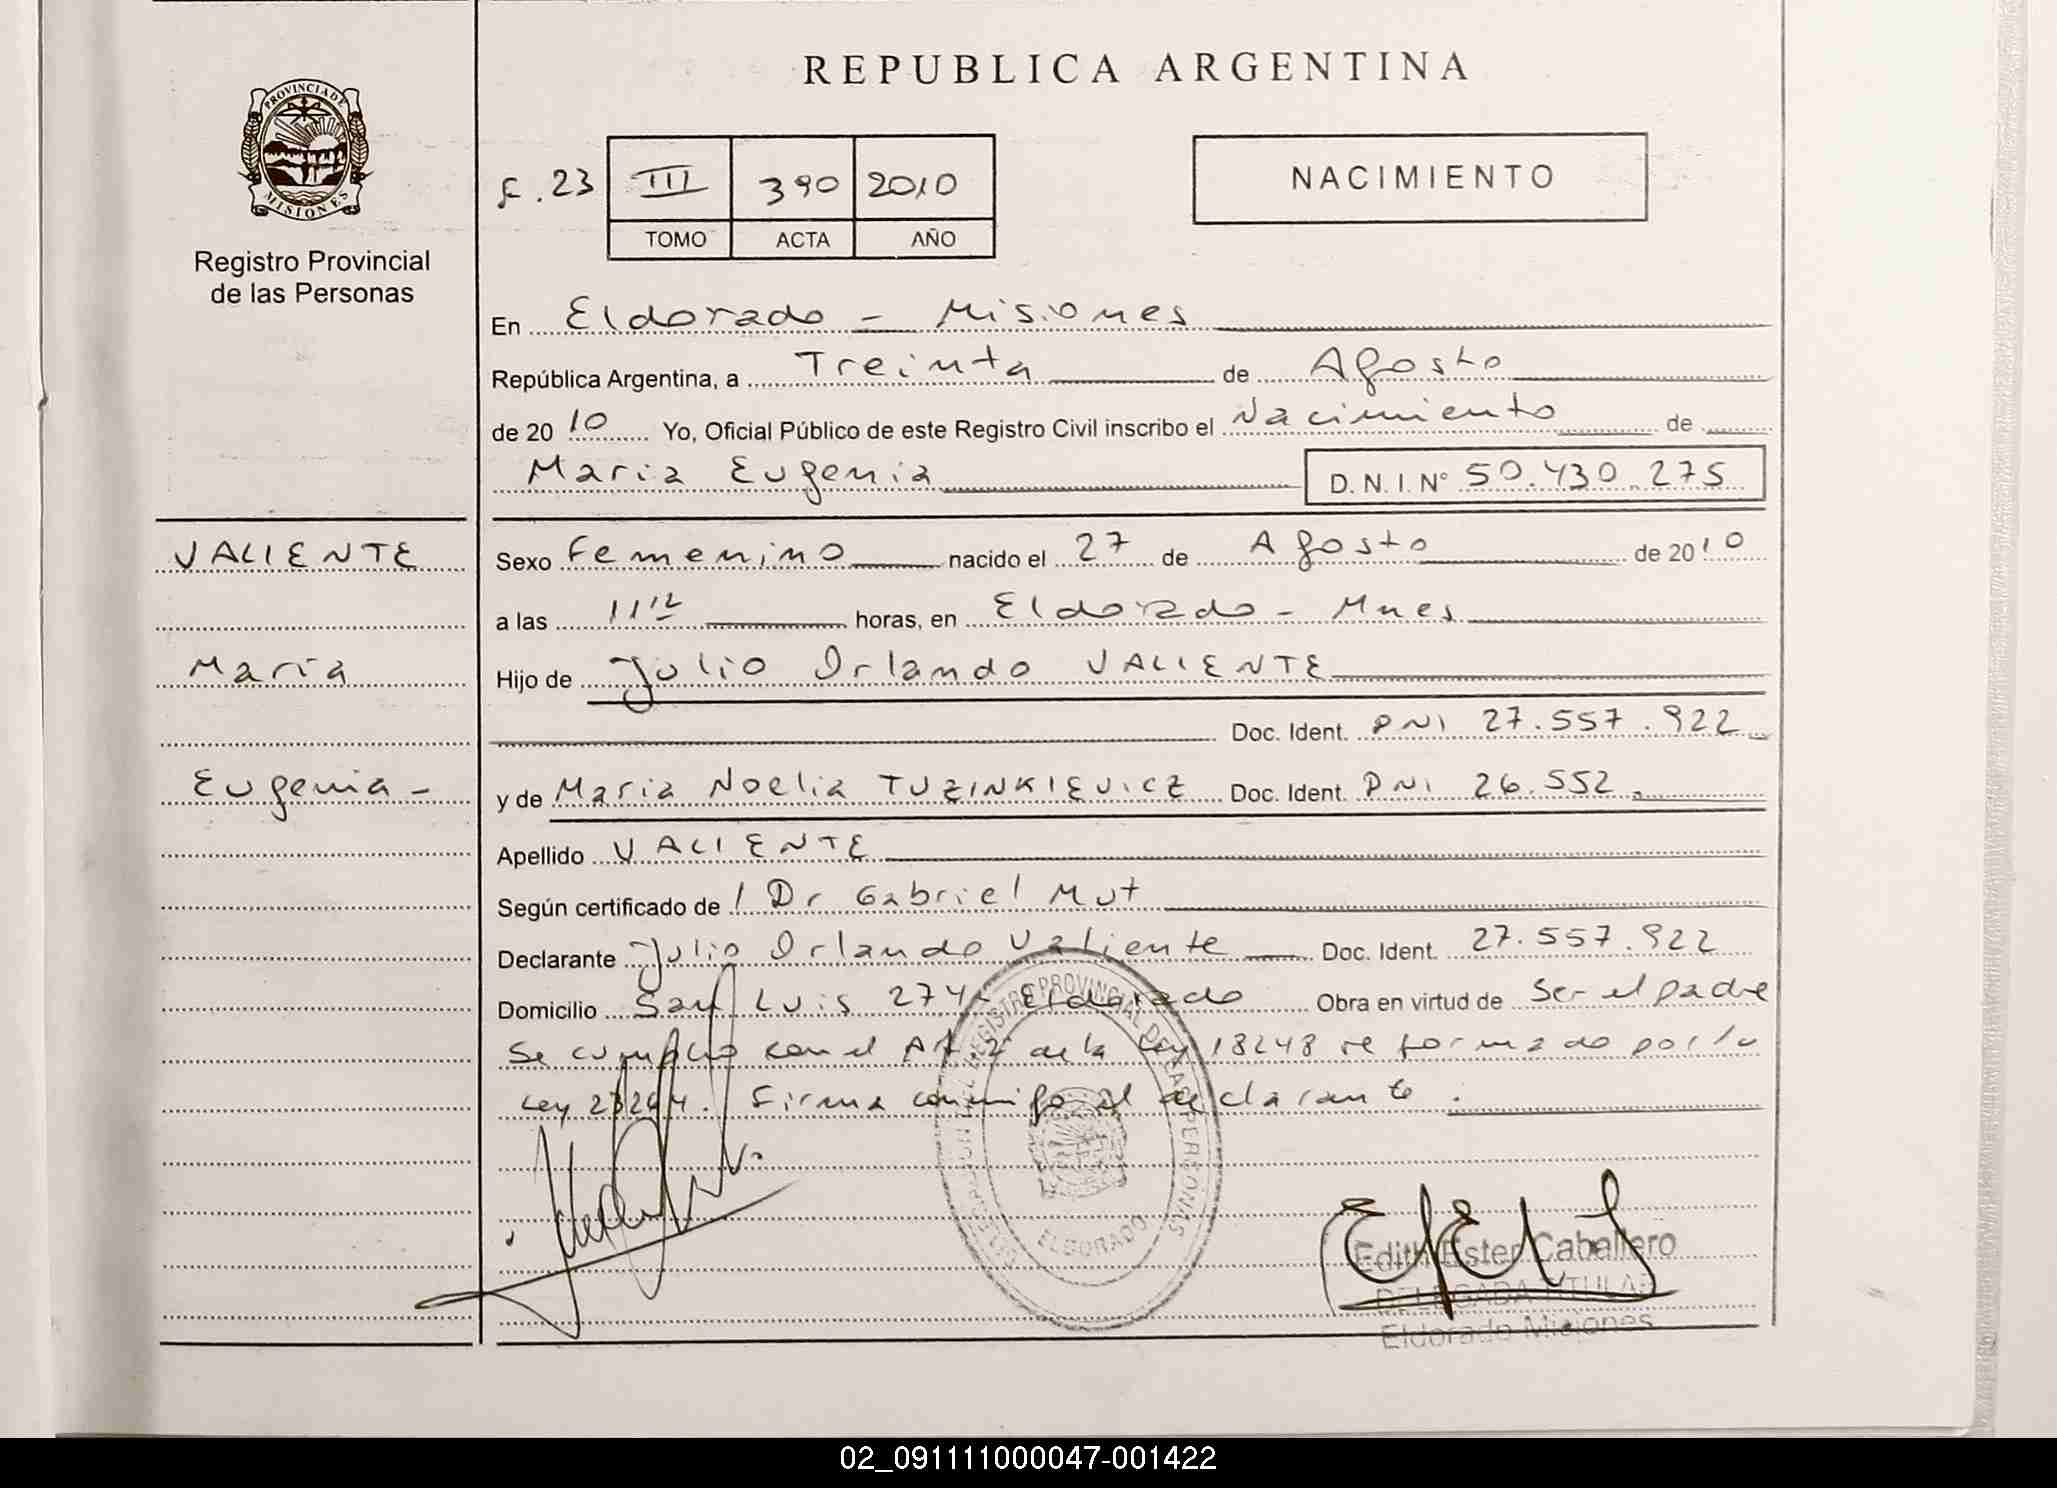 REPUBLICA ARGENTINA
PROVINCIA DE
MISIONES
Registro Provincial
de las Personas
F. 23
III 390 2010
TOMO ACTA AÑO
NACIMIENTO
En Eldorado - Misiones
República Argentina, a Treinta de Agosto
de 2010 Yo, Oficial Público de este Registro Civil inscribo el Nacimiento de
Maria Eugenia D. N. I. N° 50.430.275
VALIENTE
Maria
Eugenia -
Sexo Femenino nacido el 27 de Agosto de 2010
a las 11 12 horas, en Eldorado - Mnes
Hijo de Julio Orlando VALIENTE
Doc. Ident. DNI 27.557.922
y de Maria Noelia TUZINKIEVICZ Doc. Ident. DNI 26.552.
Apellido VALIENTE
Según certificado de / Dr Gabriel Mut
Declarante Julio Orlando Valiente Doc. Ident. 27.557.922
Domicilio San Luis 274 - Eldorado Obra en virtud de ser el padre
Se cumplio con el Art 2 de la Ley 18248 reformado por la
Ley 23264. Firma conmigo el declarante.
REGISTRO PROVINCIAL DE LAS PERSONAS
ELDORADO
Edith Ester Caballero
DELEGADA TITULAR
Eldorado Misiones
02_091111000047-001422